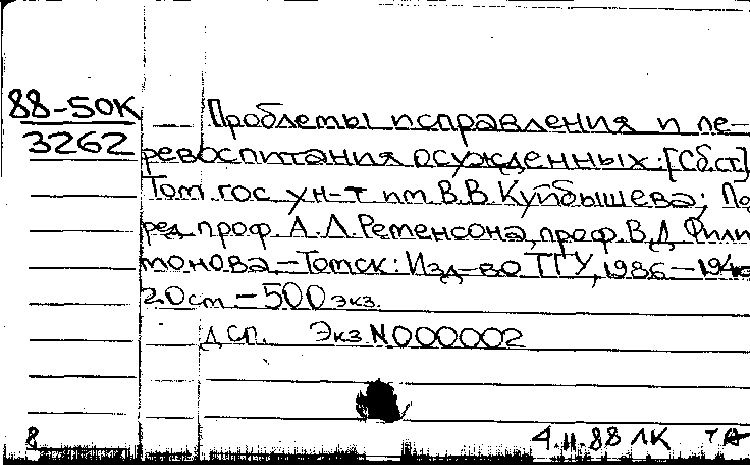 88-50К
3262
Проблемы исправления и пе-
ревоспитания осужденных: [Сб.ст]
Том. гос. ун-т им. В.В. Куйбышева; По
ред. проф. А.Л. Ременсона, проф. В.Д. Фили
монова. - Томск: Изд-во ТГУ, 1986. - 194с
20 см - 500 экз.
ДСП. Экз. N000002
8 4.11.88 ЛК